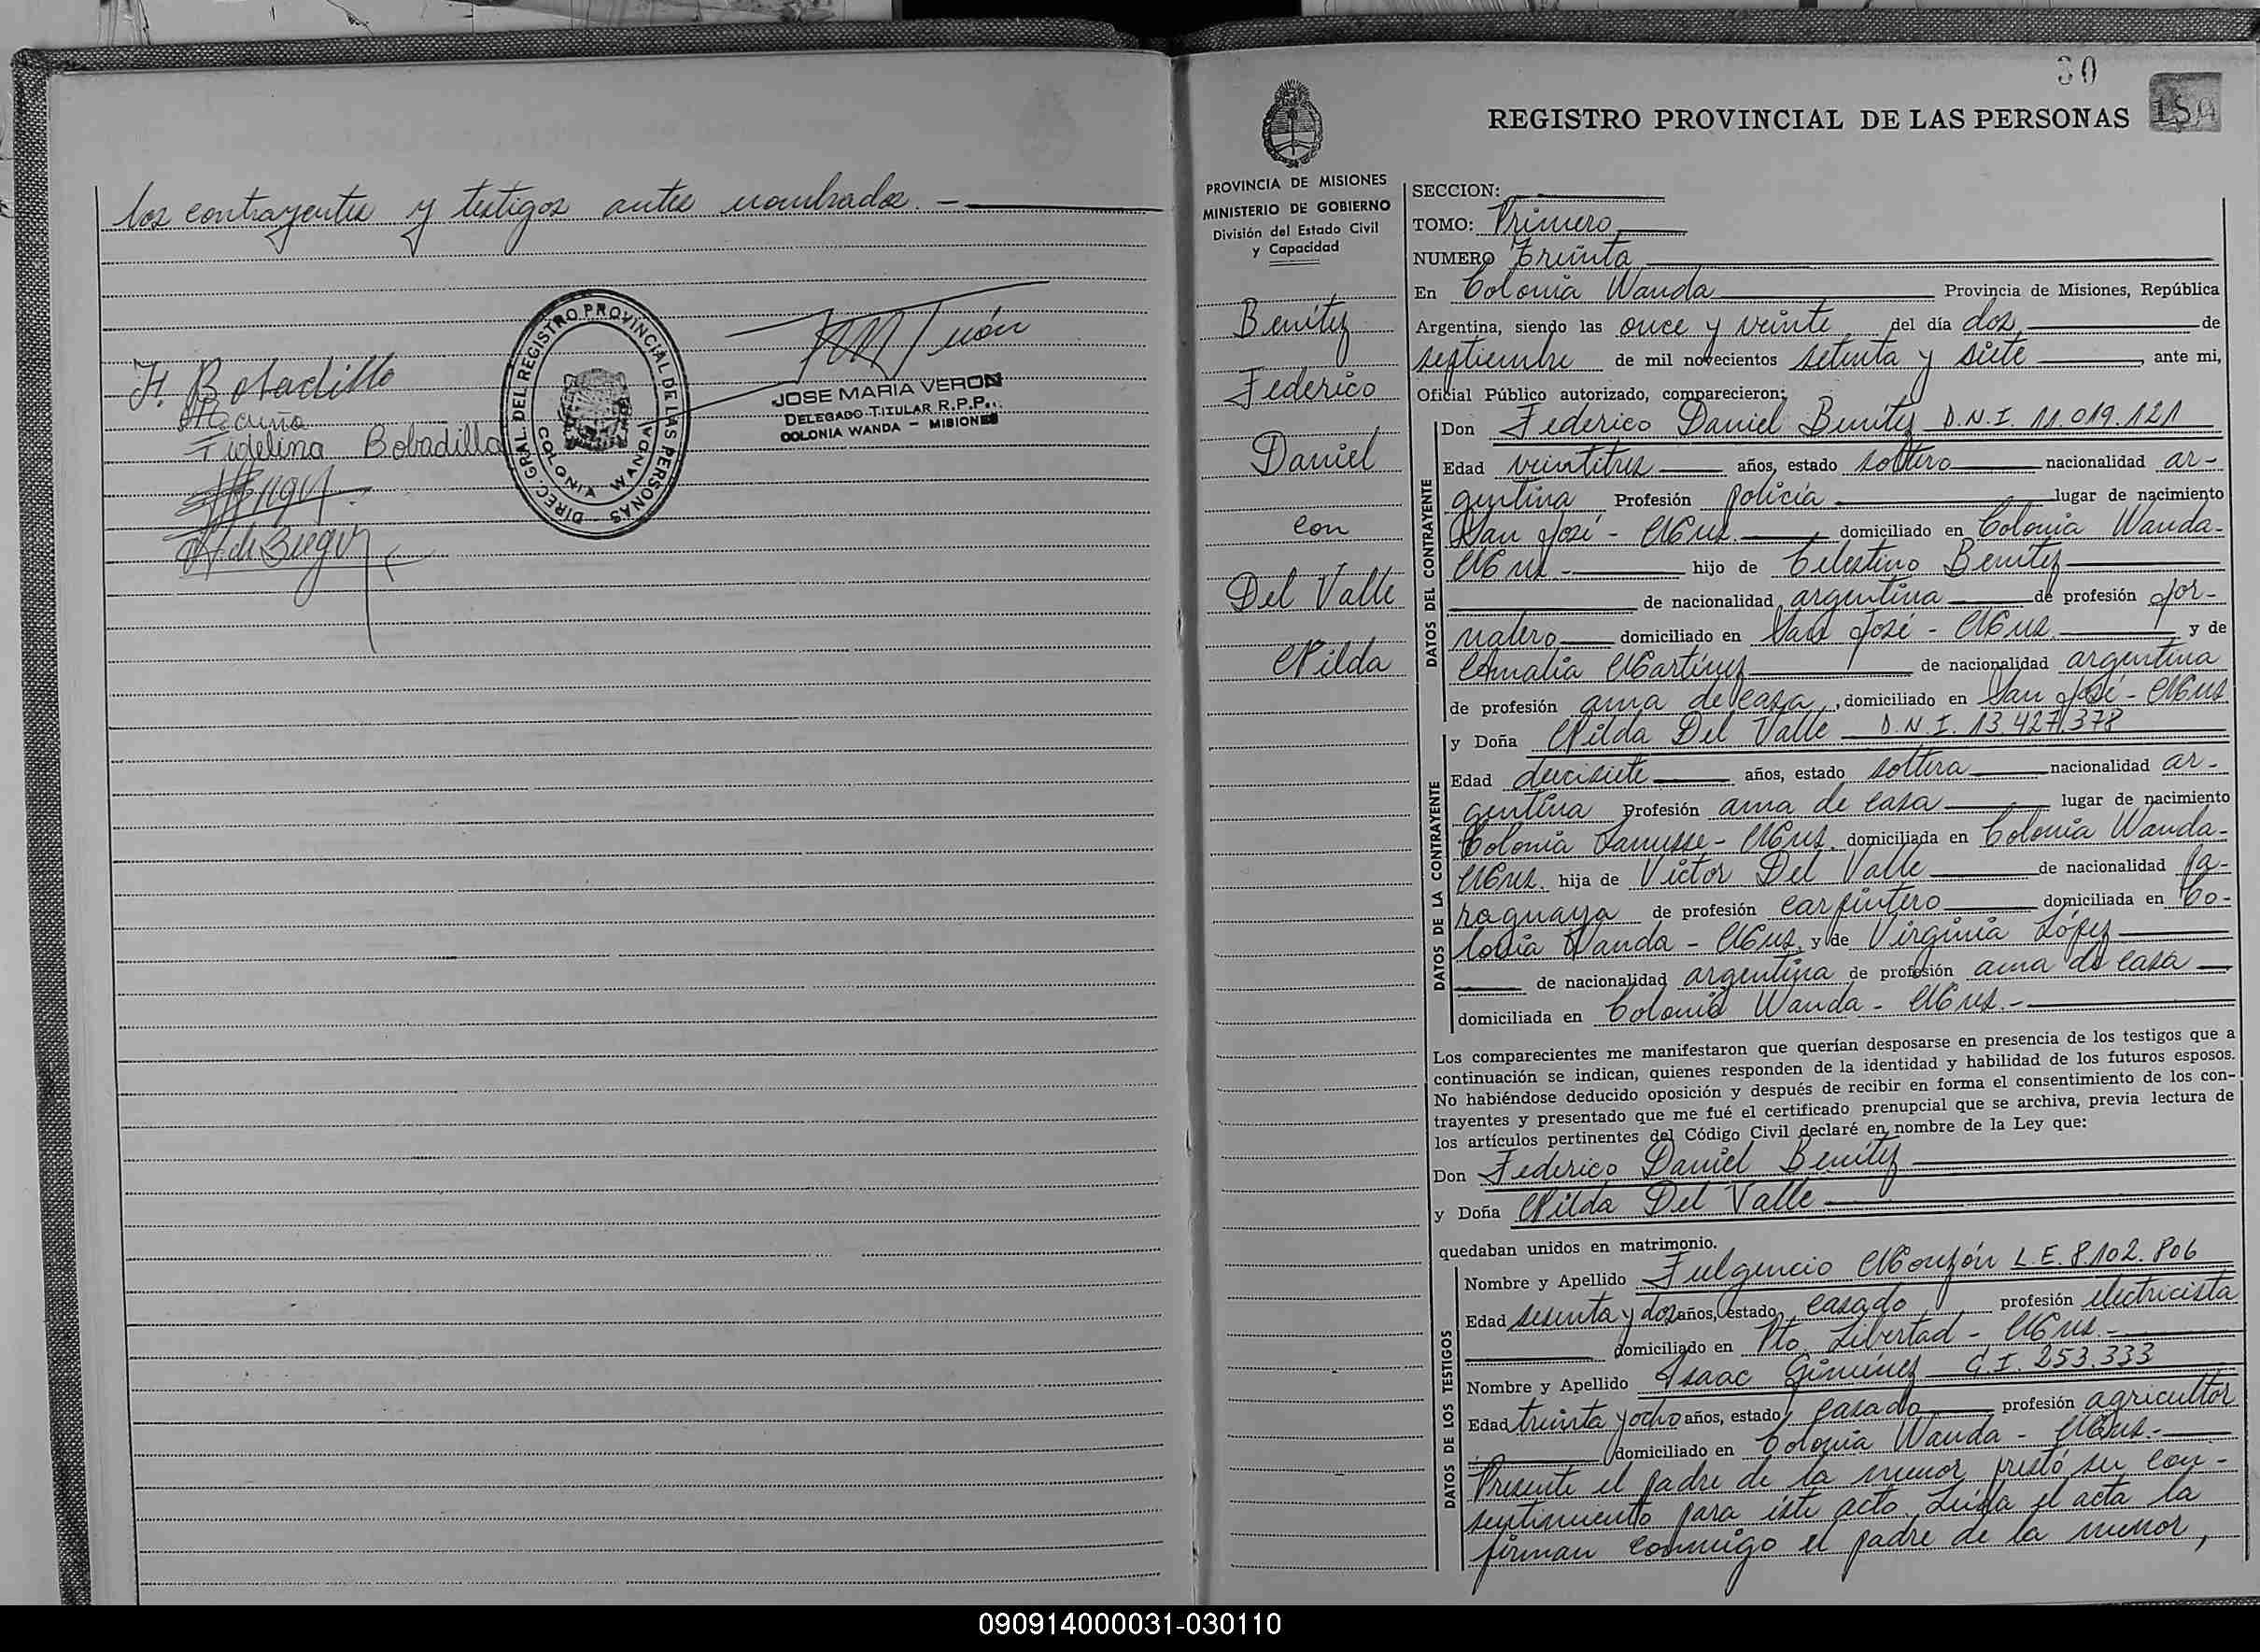 los contrayentes y testigos antes nombrados. -
H. Bobadilla
Acuña
Fidelina Bobadilla
DIREC. GRAL. DEL REGISTRO PROVINCIAL DE LAS PERSONAS
COLONIA WANDA
JOSE MARIA VERON
DELEGADO TITULAR R.P.P.
COLONIA WANDA - MISIONES
30
REGISTRO PROVINCIAL DE LAS PERSONAS
PROVINCIA DE MISIONES
MINISTERIO DE GOBIERNO
División del Estado Civil
y Capacidad
Benítez
Federico
Daniel
con
Del Valle
Nilda
SECCION:
TOMO: Primero
NUMERO Treinta
En Colonia Wanda Provincia de Misiones, República
Argentina, siendo las once y veinte del día dos de
septiembre de mil novecientos setenta y siete, ante mi,
Oficial Público autorizado, comparecieron:
DATOS DEL CONTRAYENTE
Don Federico Daniel Benítez D.N.I. 11.019.121
Edad veintitres años, estado soltero nacionalidad ar-
gentina Profesión policía lugar de nacimiento
San José - Mnes. domiciliado en Colonia Wanda-
Mnes.- hijo de Celestino Benítez
de nacionalidad argentina de profesión jor-
nalero domiciliado en San José - Mnes. y de
Amalia Martínez de nacionalidad argentina
de profesión ama de casa, domiciliado en San José - Mnes
DATOS DE LA CONTRAYENTE
y Doña Nilda Del Valle D.N.I. 13.427.378
Edad diecisiete años, estado soltera nacionalidad ar-
gentina Profesión ama de casa lugar de nacimiento
Colonia Lanusse - Mnes. domiciliada en Colonia Wanda-
Mnes. hija de Víctor Del Valle de nacionalidad pa-
raguaya de profesión carpintero domiciliada en Co-
lonia Wanda - Mnes. y de Virginia López
de nacionalidad argentina de profesión ama de casa
domiciliada en Colonia Wanda - Mnes.-
Los comparecientes me manifestaron que querían desposarse en presencia de los testigos que a
continuación se indican, quienes responden de la identidad y habilidad de los futuros esposos.
No habiéndose deducido oposición y después de recibir en forma el consentimiento de los con-
trayentes y presentado que me fué el certificado prenupcial que se archiva, previa lectura de
los artículos pertinentes del Código Civil declaré en nombre de la Ley que:
Don Federico Daniel Benítez
y Doña Nilda Del Valle
quedaban unidos en matrimonio.
DATOS DE LOS TESTIGOS
Nombre y Apellido Fulgencio Monzón L.E. 8.102.806
Edad sesenta y dos años, estado casado profesión electricista
domiciliado en Pto. Libertad - Mnes.-
Nombre y Apellido Isaac Giménez C.I. 253.333
Edad treinta y ocho años, estado casado profesión agricultor
domiciliado en Colonia Wanda - Mnes.-
Presente el padre de la menor prestó su con-
sentimiento para éste acto. Leída el acta la
firman conmigo el padre de la menor,
090914000031-030110